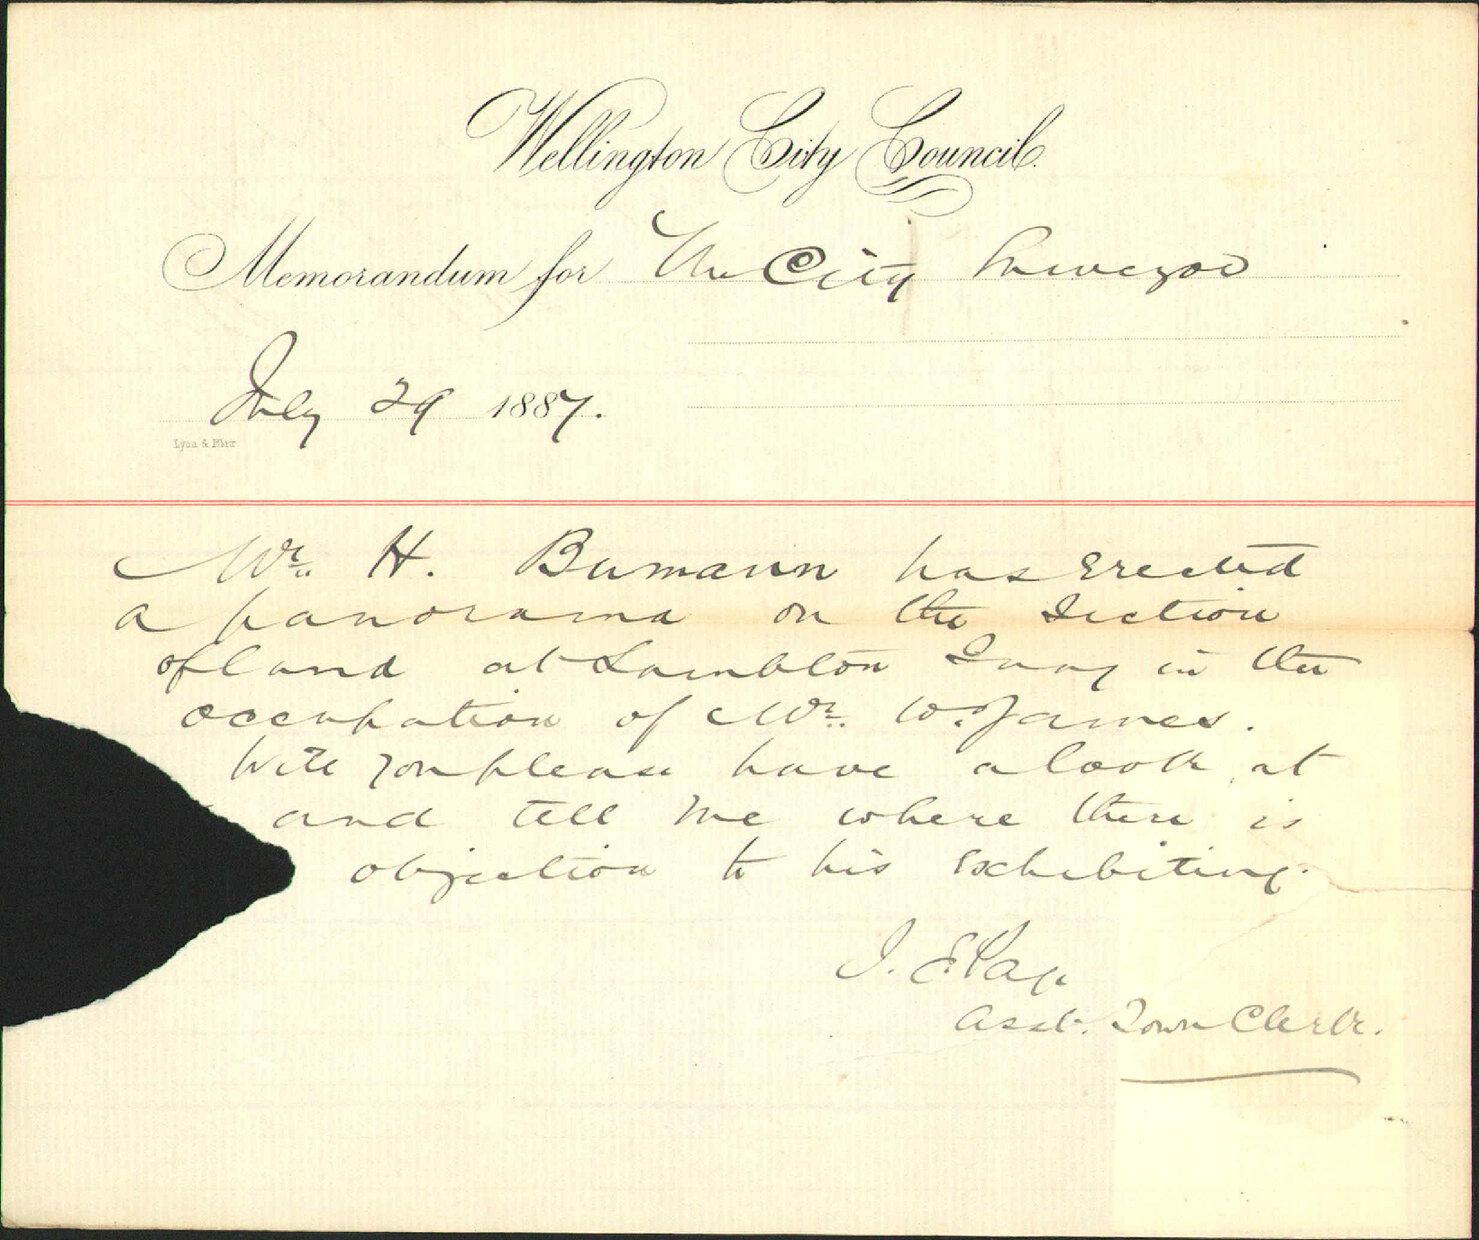 Wellington City Council.
Memorandum for The City Surveyor
July 29 1887.
Lyon & Blair
Mr. H. Bumann has erected
a panorama on the section
of land at Lambton Quay in the
occupation of Mr. W. James.
Will you please have a look at
and tell me where there is
objection to his exhibiting.
J. E. Page
Asst. Town Clerk.